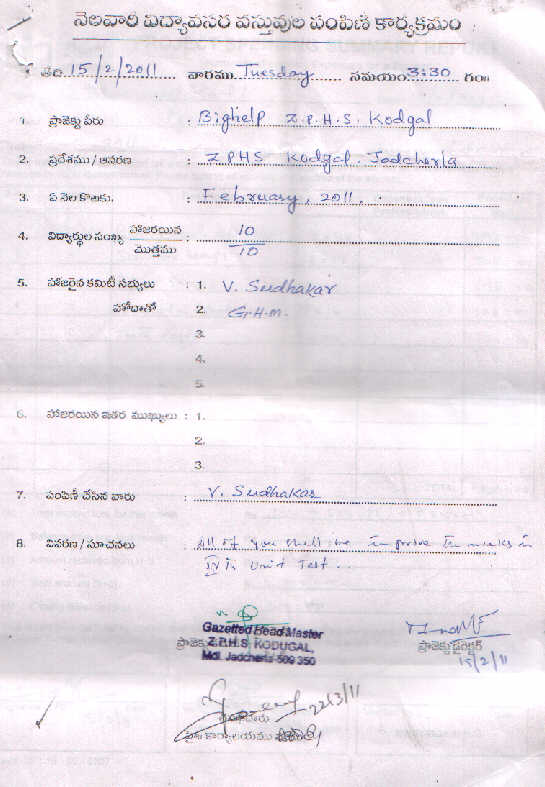 నెలవారి విద్యావసర వస్తువుల పంపిణి కార్యక్రమం
తేది 15/2/2011 వారము Tuesday సమయం 3:30 గం॥
1. ప్రాజెక్టు పేరు : Bighelp Z.P.H.S. Kodgal
2. ప్రదేశము / ఆవరణ : ZPHS Kodgal. Jadcherla
3. ఏ నెల కొఱకు. : February, 2011.
4. విద్యార్థుల సంఖ్య హాజరయిన : 10
మొత్తము 10
5. హాజరైన కమిటీ సభ్యులు : 1. V. Sudhakar
హోదాతో 2. G.H.M.
3.
4.
5.
6. హాజరయిన ఇతర ముఖ్యులు : 1.
2.
3.
7. పంపిణీ చేసిన వారు : V. Sudhakar
8. వివరణ / సూచనలు : All of you shall be improve the marks in
IV th Unit Test..
Gazetted Head Master
Z.P.H.S. KODUGAL,
Mdl. Jadcherla-509 350
ప్రాజెక్టు డైరెక్టర్
15/2/11
22/3/11